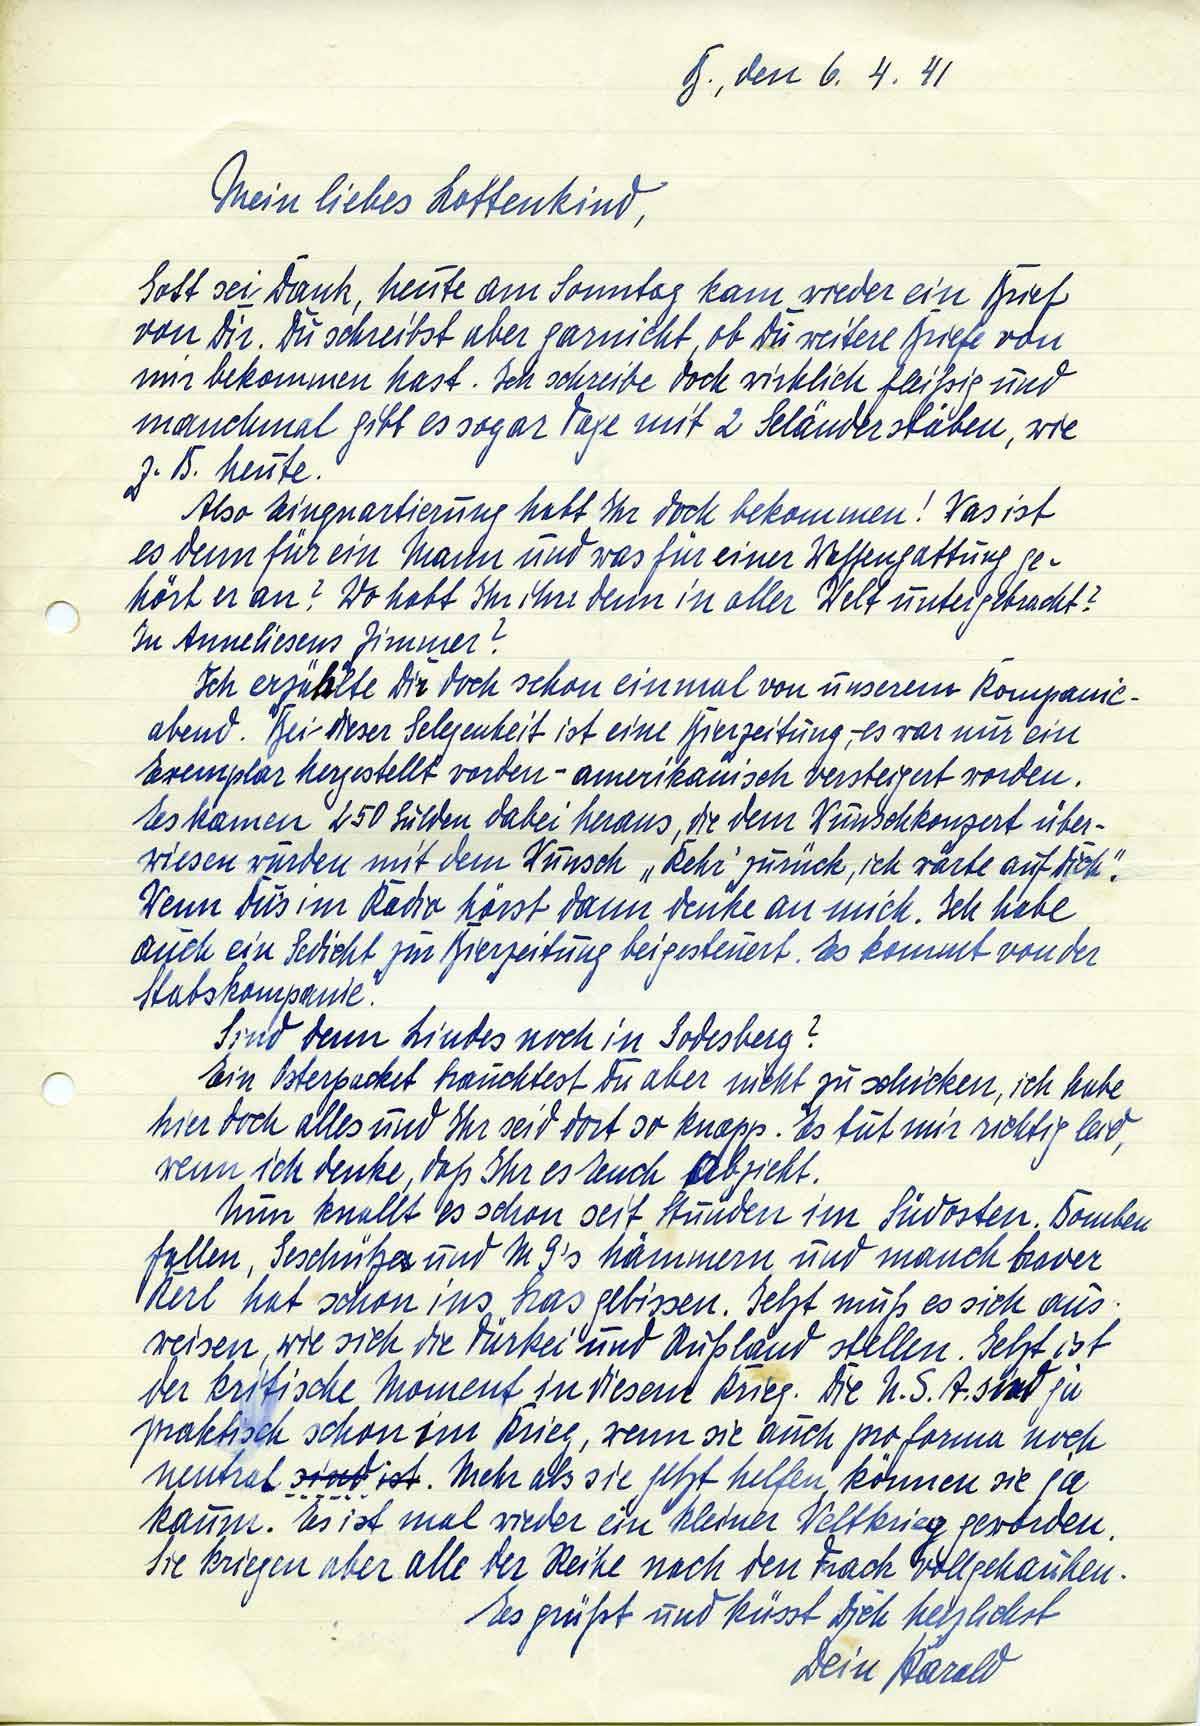 B., den 6. 4. 41
Mein liebes Lottenkind,
Gott sei Dank, heute am Sonntag kam wieder ein Brief
von Dir. Du schreibst aber garnicht, ob Du weitere Briefe von
mir bekommen hast. Ich schreibe doch wirklich fleißig und
manchmal gibt es sogar Tage mit 2 Geländerstäben, wie
z. B. heute.
Also Einquartierung habt Ihr doch bekommen! Was ist
es denn für ein Mann und was für einer Waffengattung ge-
hört er an? Wo habt Ihr ihn denn in aller Welt untergebracht?
In Anneliesens Zimmer?
Ich erzählte Dir doch schon einmal von unserem Kompanie-
abend. Bei dieser Gelegenheit ist eine Bierzeitung, - es war nur ein
Exemplar hergestellt worden - amerikanisch versteigert worden.
Es kamen 250 Gulden dabei heraus, die dem Wunschkonzert über-
wiesen wurden mit dem Wunsch „Kehr' zurück, ich warte auf Dich".
Wenn Du's im Radio hörst dann denke an mich. Ich habe
auch ein Gedicht zur Bierzeitung beigesteuert. Es kommt von der
Stabskompanie."
Sind denn Lindes noch in Godesberg?
Ein Osterpacket brauchtest Du aber nicht zu schicken, ich habe
hier doch alles und Ihr seid dort so knapp. Es tut mir richtig leid,
wenn ich denke, daß Ihr es Euch abzieht.
Nun knallt es schon seit Stunden im Südosten. Bomben
fallen, Geschütze und M G's hämmern und manch braver
Kerl hat schon ins Gras gebissen. Jetzt muß es sich aus-
weisen, wie sich die Türkei und Rußland stellen. Jetzt ist
der kritische Moment in diesem Krieg. Die U. S. A. sind ja
praktisch schon im Krieg, wenn sie auch pro forma noch
neutral sind ist. Mehr als sie jetzt helfen, können sie ja
kaum. Es ist mal wieder ein kleiner Weltkrieg geworden.
Sie kriegen aber alle der Reihe nach den Frack vollgehauen.
Es grüßt und küsst Dich herzlichst
Dein Harald